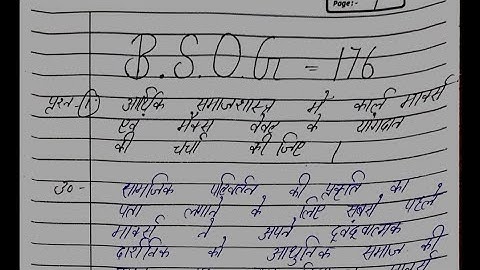 Page:- 1
B.S.O.G = 176
प्रश्न-(1) आर्थिक समाजशास्त्र में कार्ल मार्क्स
एवं मैक्स वेबर के योगदान
की चर्चा कीजिए।
उ०- सामाजिक परिवर्तन की प्रकृति का
पता लगाने के लिए सबसे पहले
मार्क्स ने अपने द्वंद्वात्मक
दार्शनिक को आधुनिक समाज की